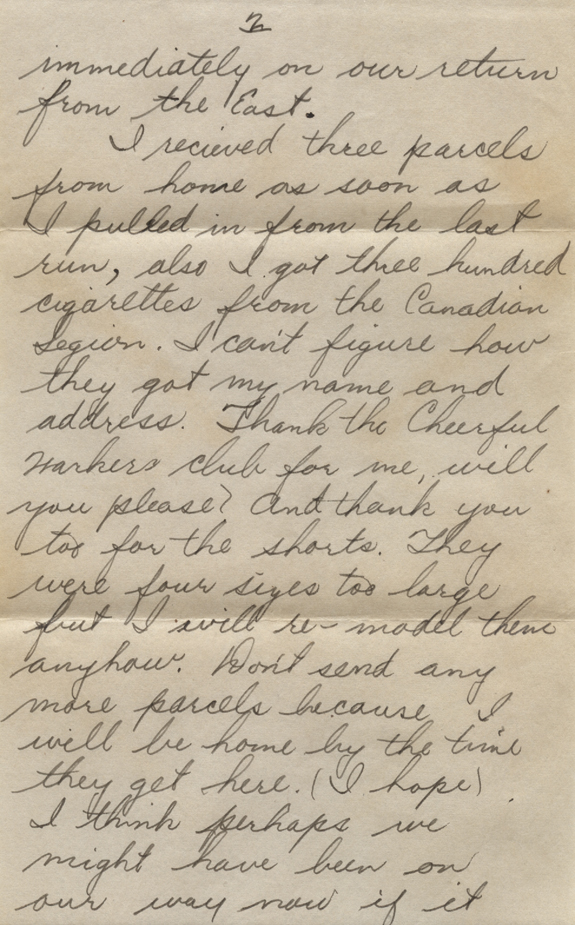 2
immediately on our return
from the East.
I recieved three parcels
from home as soon as
I pulled in from the last
run, also I got three hundred
cigarettes from the Canadian
Legion. I can't figure how
they got my name and
address. Thank the Cheerful
Workers club for me, will
you please? And thank you
too for the shorts. They
were four sizes too large
but I will re-model them
anyhow. Don't send any
more parcels because I
will be home by the time
they get here. (I hope)
I think perhaps we
might have been on
our way now if it